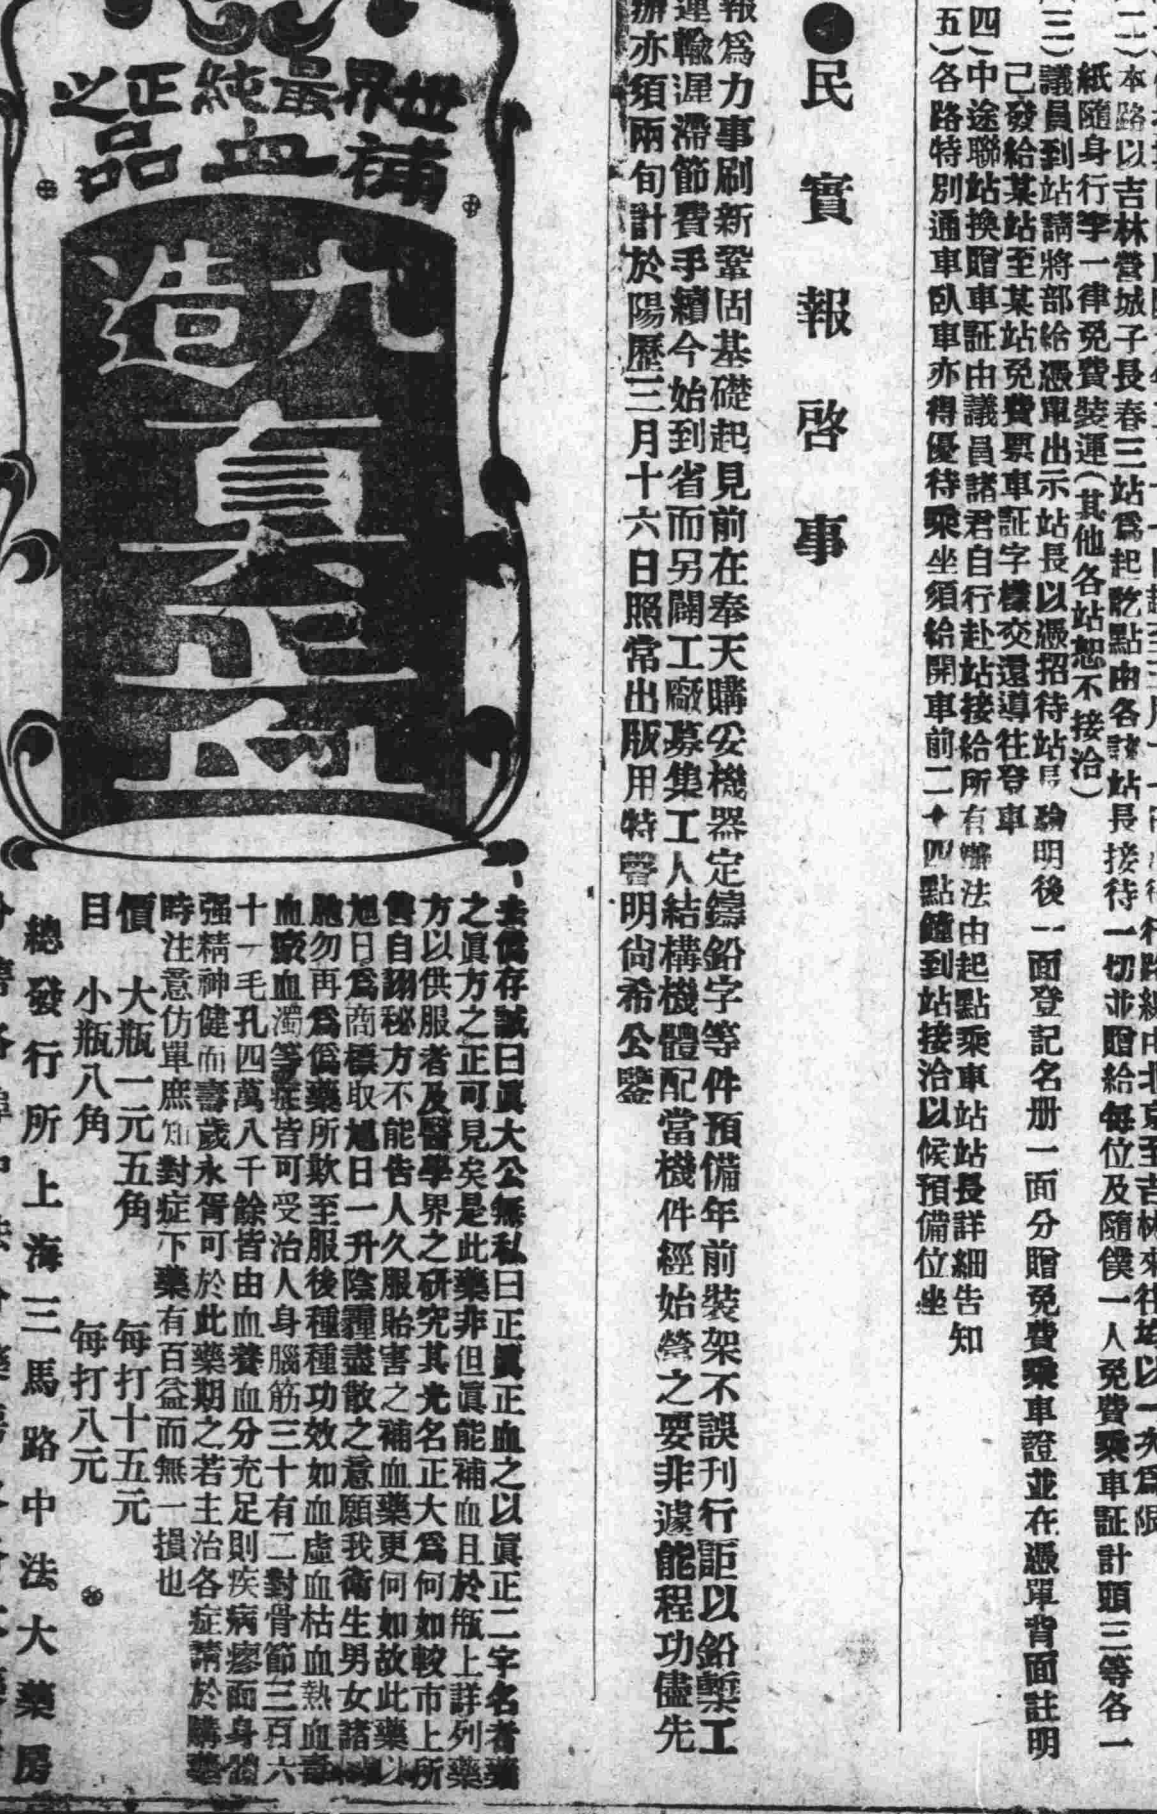 二)本路以吉林營城子長春三站爲起訖點由各該站長接待一切並贈給每位及隨僕一人免費乘車証計頭三等各一
紙隨身行李一律免費裝運(其他各站恕不接洽)
三)議員到站請將部給憑單出示站長以憑招待站長驗明後一面登記名册一面分贈免費乘車證並在憑單背面註明
已發給某站至某站免費票車証字樣交還導往登車
四)中途聯站換贈車証由議員諸君自行赴站接給所有辦法由起點乘車站站長詳細告知
五)各路特別通車臥車亦得優待乘坐須給開車前二十四點鐘到站接洽以候預備位坐
民實報啓事
報爲力事刷新鞏固基礎起見前在奉天購妥機器定鑄鉛字等件預備年前裝架不誤刊行詎以鉛槧工
運輸濡滯節費手續今始到省而另闢工廠募集工人結構機體配當機件經始營之要非遽能程功儘先
辦亦須兩旬計於陽歷三月十六日照常出版用特聲明尙希公鑒
世界最純正之
補血品
九造
眞正血
去僞存誠曰眞大公無私曰正眞正血之以眞正二字名者藥
之眞方之正可見矣是此藥非但眞能補血且於瓶上詳列藥
方以供服者及醫學界之研究其光名正大爲何如較市上所
售自謝秘方不能告人久服貽害之補血藥更何如故此藥以
旭日爲商標取旭日一升陰霾盡散之意願我衛生男女諸
勿再爲僞藥所欺至服後種種功效如血虛血枯血熱血
血瘀血濁等症皆可受治人身腦筋三十有二對骨節三百六
十一毛孔四萬八千餘皆由血養血分充足則疾病瘳而身體
强精神健而壽歲永胥可於此藥期之若主治各症請於購藥
時注意仿單庶知對症下藥有百益而無一損也
價 大瓶一元五角 每打十五元
目 小瓶八角 每打八元
總發行所上海三馬路中法大藥房